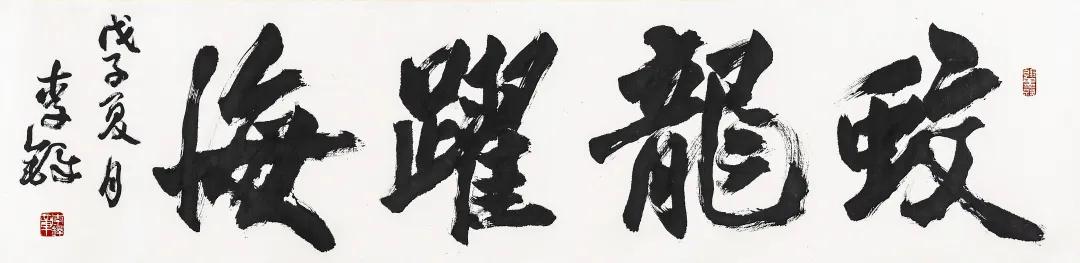 蛟龍躍海
戊子夏月
李鐸